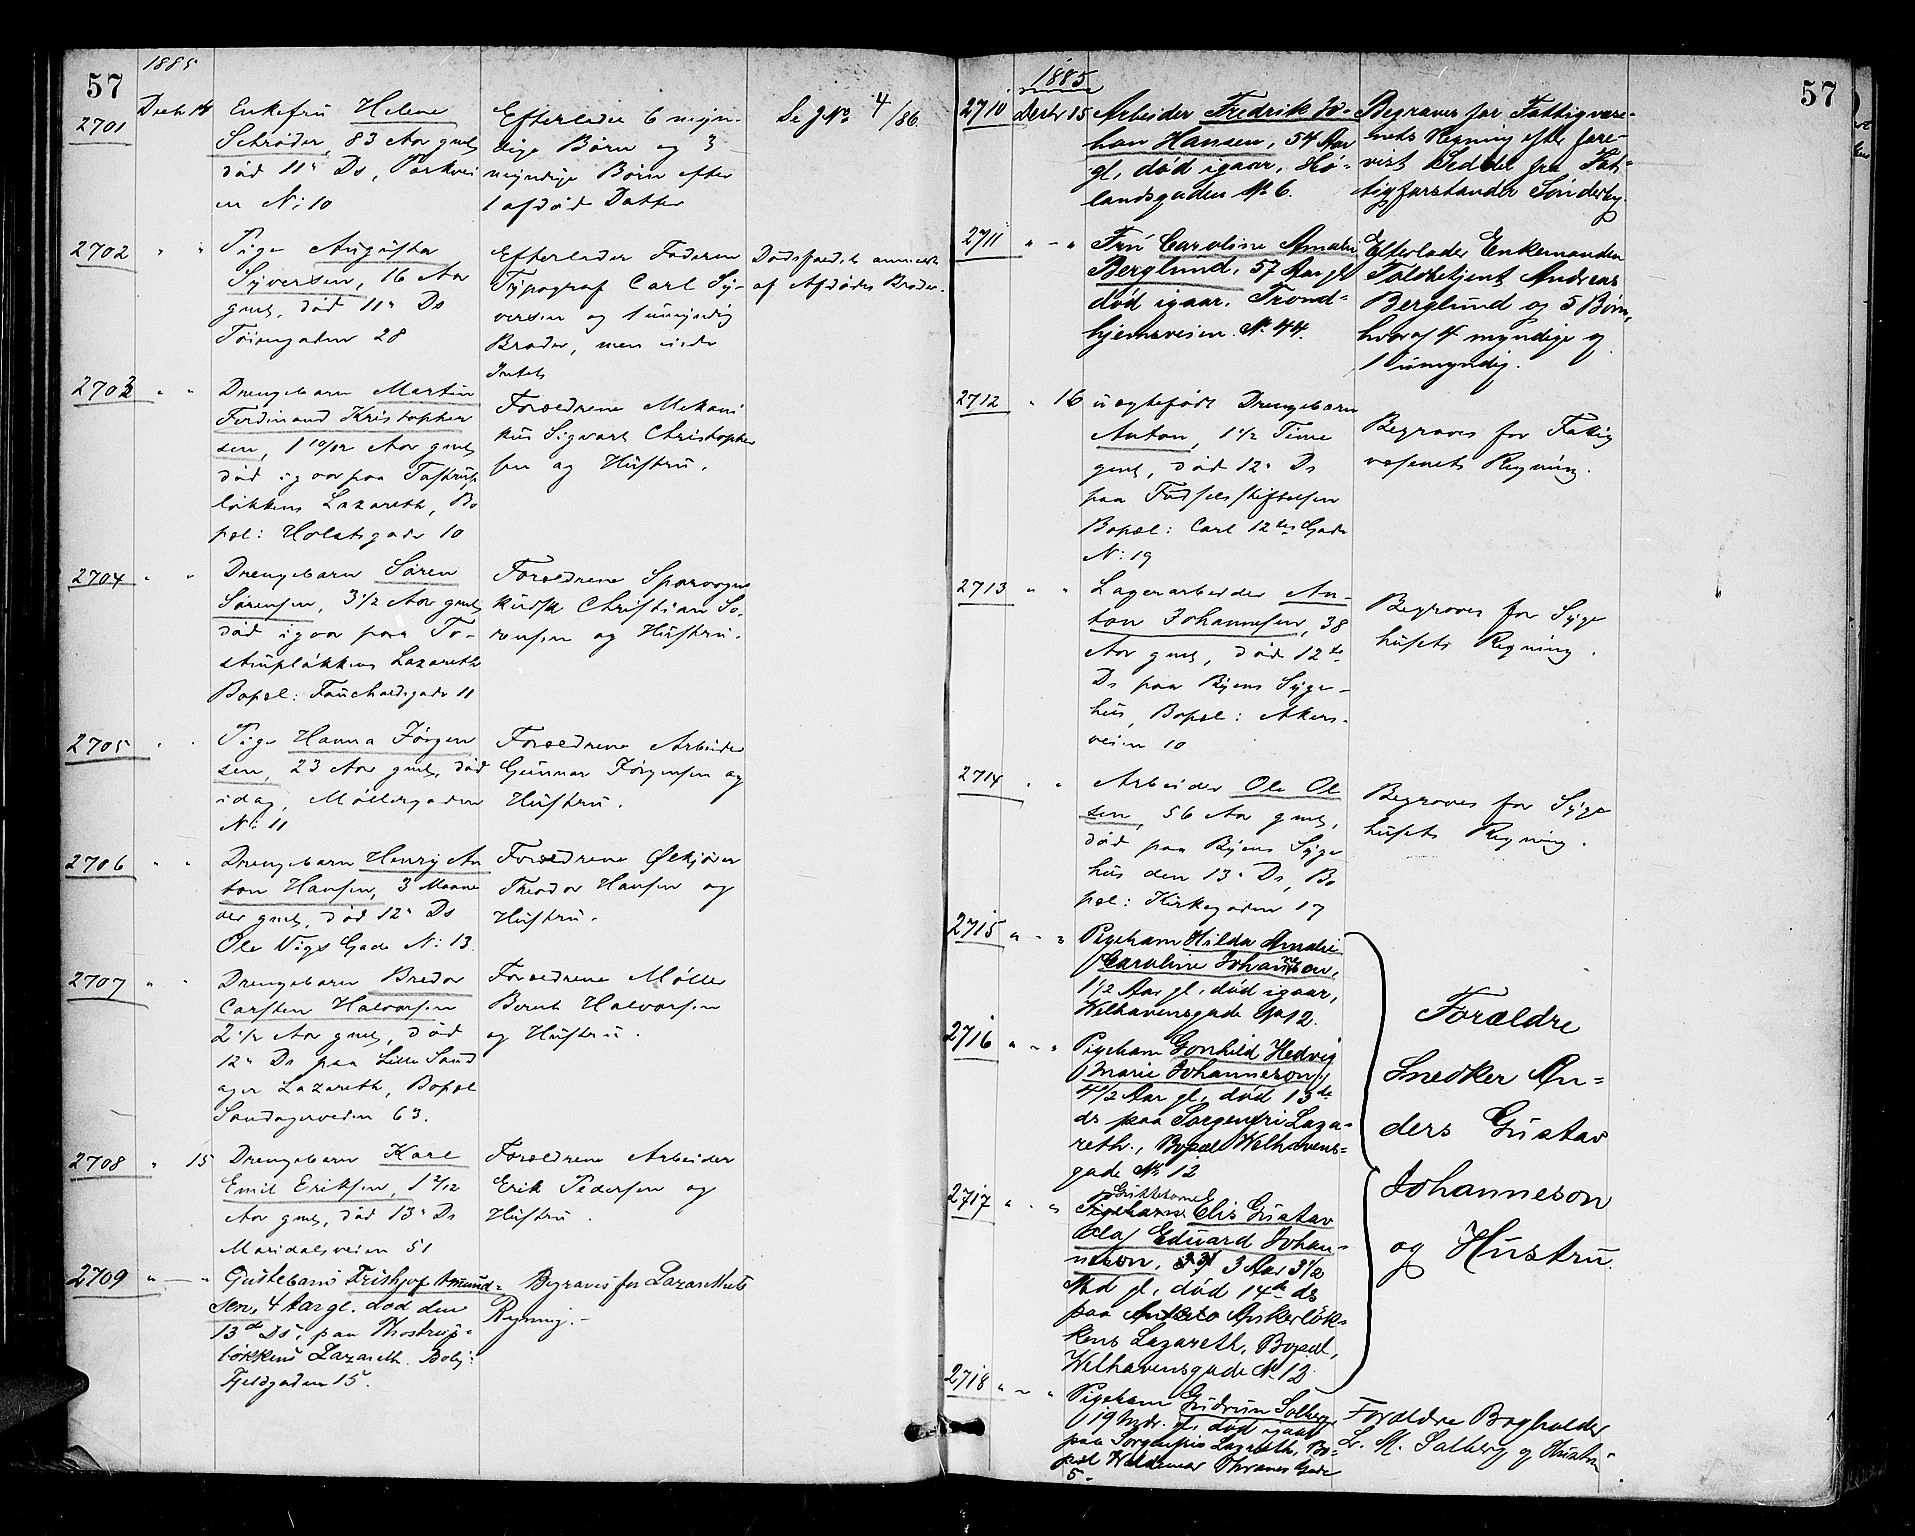 57
1885
2701 Decbr 14 Enkefru Helene
Schrøder, 83 Aar gml
död 11te Ds, Parkvei
en No: 10
Efterlader 6 myn-
dige Børn og 3
myndige Børn efter
1 afdød Datter
Se J No. 4/86.
2702 " " Pige Augusta
Syversen, 16 Aar
gml, död 11te Ds
Töiengaden 28
Efterlader Faderen
Typograf Carl Sy-
versen og 1 umyndig
Broder, men eiede
Intet
Dødsfaldet anmeldt
af Afdødes Broder.
2703 " " Drengebarn Martin
Ferdinand Kristopher
sen, 1 10/12 Aar gml
död igaar paa Tastrup
løkkens Lazareth, Bo
pæl: Holstsgade 10
Forældrene Mekani
kus Sigvart Christopher
sen og Hustru.
2704 " " Drengebarn Søren
Sørensen, 3 1/2 Aar gml
död igaar paa To-
struplökkens Lazareth
Bopæl: Fauchaldsgade 11
Forældrene Sporvogns
kudsk Christian Sö-
rensen og Hustru.
2705 " " Pige Hanna Jörgen
sen, 23 Aar gml, död
idag, Møllergaden
No: 11
Forældrene Arbeider
Gunnar Jörgensen og
Hustru.
2706 " " Drengebarn Henry An
ton Hansen, 3 Maane
der gml, död 12te Ds
Ole Vigs Gade No: 13.
Forældrene Ølkjører
Theodor Hansen og
Hustru.
2707 " " Drengebarn Bredor
Carsten Halvorsen
2 1/2 Aar gml, död
12te Ds paa Lille Sand
ager Lazareth, Bopæl
Sandagerveien 63.
Forældrene Møller
Bernt Halvorsen
og Hustru.
2708 " 15 Drengebarn Karl
Emil Eriksen, 1 2/12
Aar gml, död 13te Ds
Maridalsveien 51
Forældrene Arbeider
Erik Pedersen og
Hustru.
2709 " — " Guttebarn Frithjof Amund-
sen, 4 Aar gl. død den
13de Ds, paa Thostrup-
løkkens Lazareth. Bolig:
Fjeldgaden 15.
Begraves for Lazarethets
Regning.
57
1885
2710 Decbr 15 Arbeider Fredrik Jo-
han Hansen, 54 Aar
gl, død igaar, Hø-
landsgaden No 6.
Begraves for Fattigvæse-
nets Regning efter fore-
vist Seddel fra Fat-
tigforstander Sønderby.
2711 " - " Fru Caroline Amalie
Berglund, 57 Aar gl
død igaar. Trond-
hjemsveien No. 44.
Efterlader Enkemanden
Toldbetjent Andreas
Berglund og 5 Børn,
hvoraf 4 myndige og
1 umyndig.
2712 " 16 uægtefödt Drengebarn
Anton, 1 1/2 Time
gml, död 12te Ds
paa Fødselsstiftelsen
Bopæl: Carl 12tes Gade
No: 19
Begraves for Fattig
væsenets Regning.
2713 " " Lagerarbeider An-
ton Johannesen, 38
Aar gml, död 12te
Ds paa Byens Syge-
hus, Bopæl: Akers-
veien 10
Begraves for Syge
husets Regning.
2714 " " Arbeider Ole Ol
sen, 56 Aar gml,
död paa Byens Syge
hus den 13te Ds, Bo
pæl: Kirkegaden 17
Begraves for Syge
husets Regning.
2715 " - " Pigebarn Hilda Amalie
Caroline Johanneson,
1 1/2 Aar gl. död igaar,
Welhavensgade No 12.
2716 " - " Pigebarn Gonhild Hedvig
Marie Johanneson,
4 1/2 Aar gl, død 13de
ds paa Sorgenfri Laza-
reth., Bopæl Welhavens-
gade No 12
2717 " - " Guttebarnet
Pigebarn Elis Gustav
Olaf Eduard Johan-
neson, 3 Aar 3 1/2
Md gl, død 14de ds
paa Ankerløk-
kens Lazareth, Bopæl,
Welhavensgade No 12.
Forældre
Snedker An-
ders Gustav
Johanneson
og Hustru.
2718 " - " Pigebarn Gudrun Solberg
19 Mdr. gl, død igaar
paa Sorgenfri Lazareth, Bo-
pæl Waldemar Thranes Gade
5.
Forældre Bogholder
L. M. Solberg og Hustru